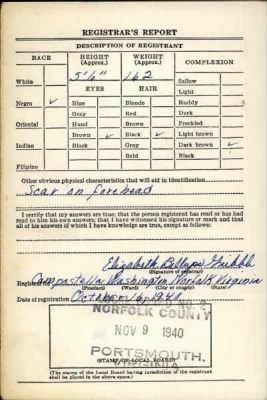 REGISTRAR'S REPORT
DESCRIPTION OF REGISTRANT
RACE HEIGHT (Approx.) WEIGHT (Approx.) COMPLEXION
5'6" 162
White Sallow
EYES HAIR Light
Negro ✓ Blue Blonde Ruddy
Gray Red Dark
Oriental Hazel Brown Freckled
Brown ✓ Black ✓ Light brown
Indian Black Gray Dark brown ✓
Bald Black
Filipino
Other obvious physical characteristics that will aid in identification
Scar on forehead
I certify that my answers are true; that the person registered has read or has had
read to him his own answers; that I have witnessed his signature or mark and that
all of his answers of which I have knowledge are true, except as follows:
Elizabeth
(Signature of registrar)
Registrar for Washington Norfolk Virginia
(Precinct) (Ward) (City or county) (State)
Date of registration October 16, 1940
NO. 2
NORFOLK COUNTY
NOV 9 1940
PORTSMOUTH,
VIRGINIA
(STAMP OF LOCAL BOARD)
(The stamp of the Local Board having jurisdiction of the registrant
shall be placed in the above space.)